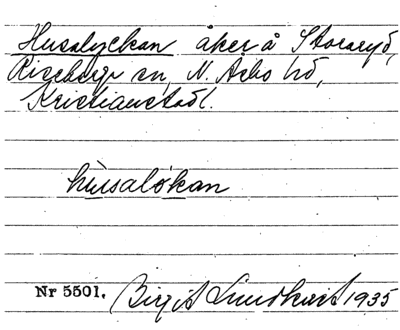 Husalyckan åker å Storaryd,
Riseberga sn, N. Åsbo hd,
Kristianstadl.
husalo̥kan
Nr 5501. Birgit Lundkvist 1935